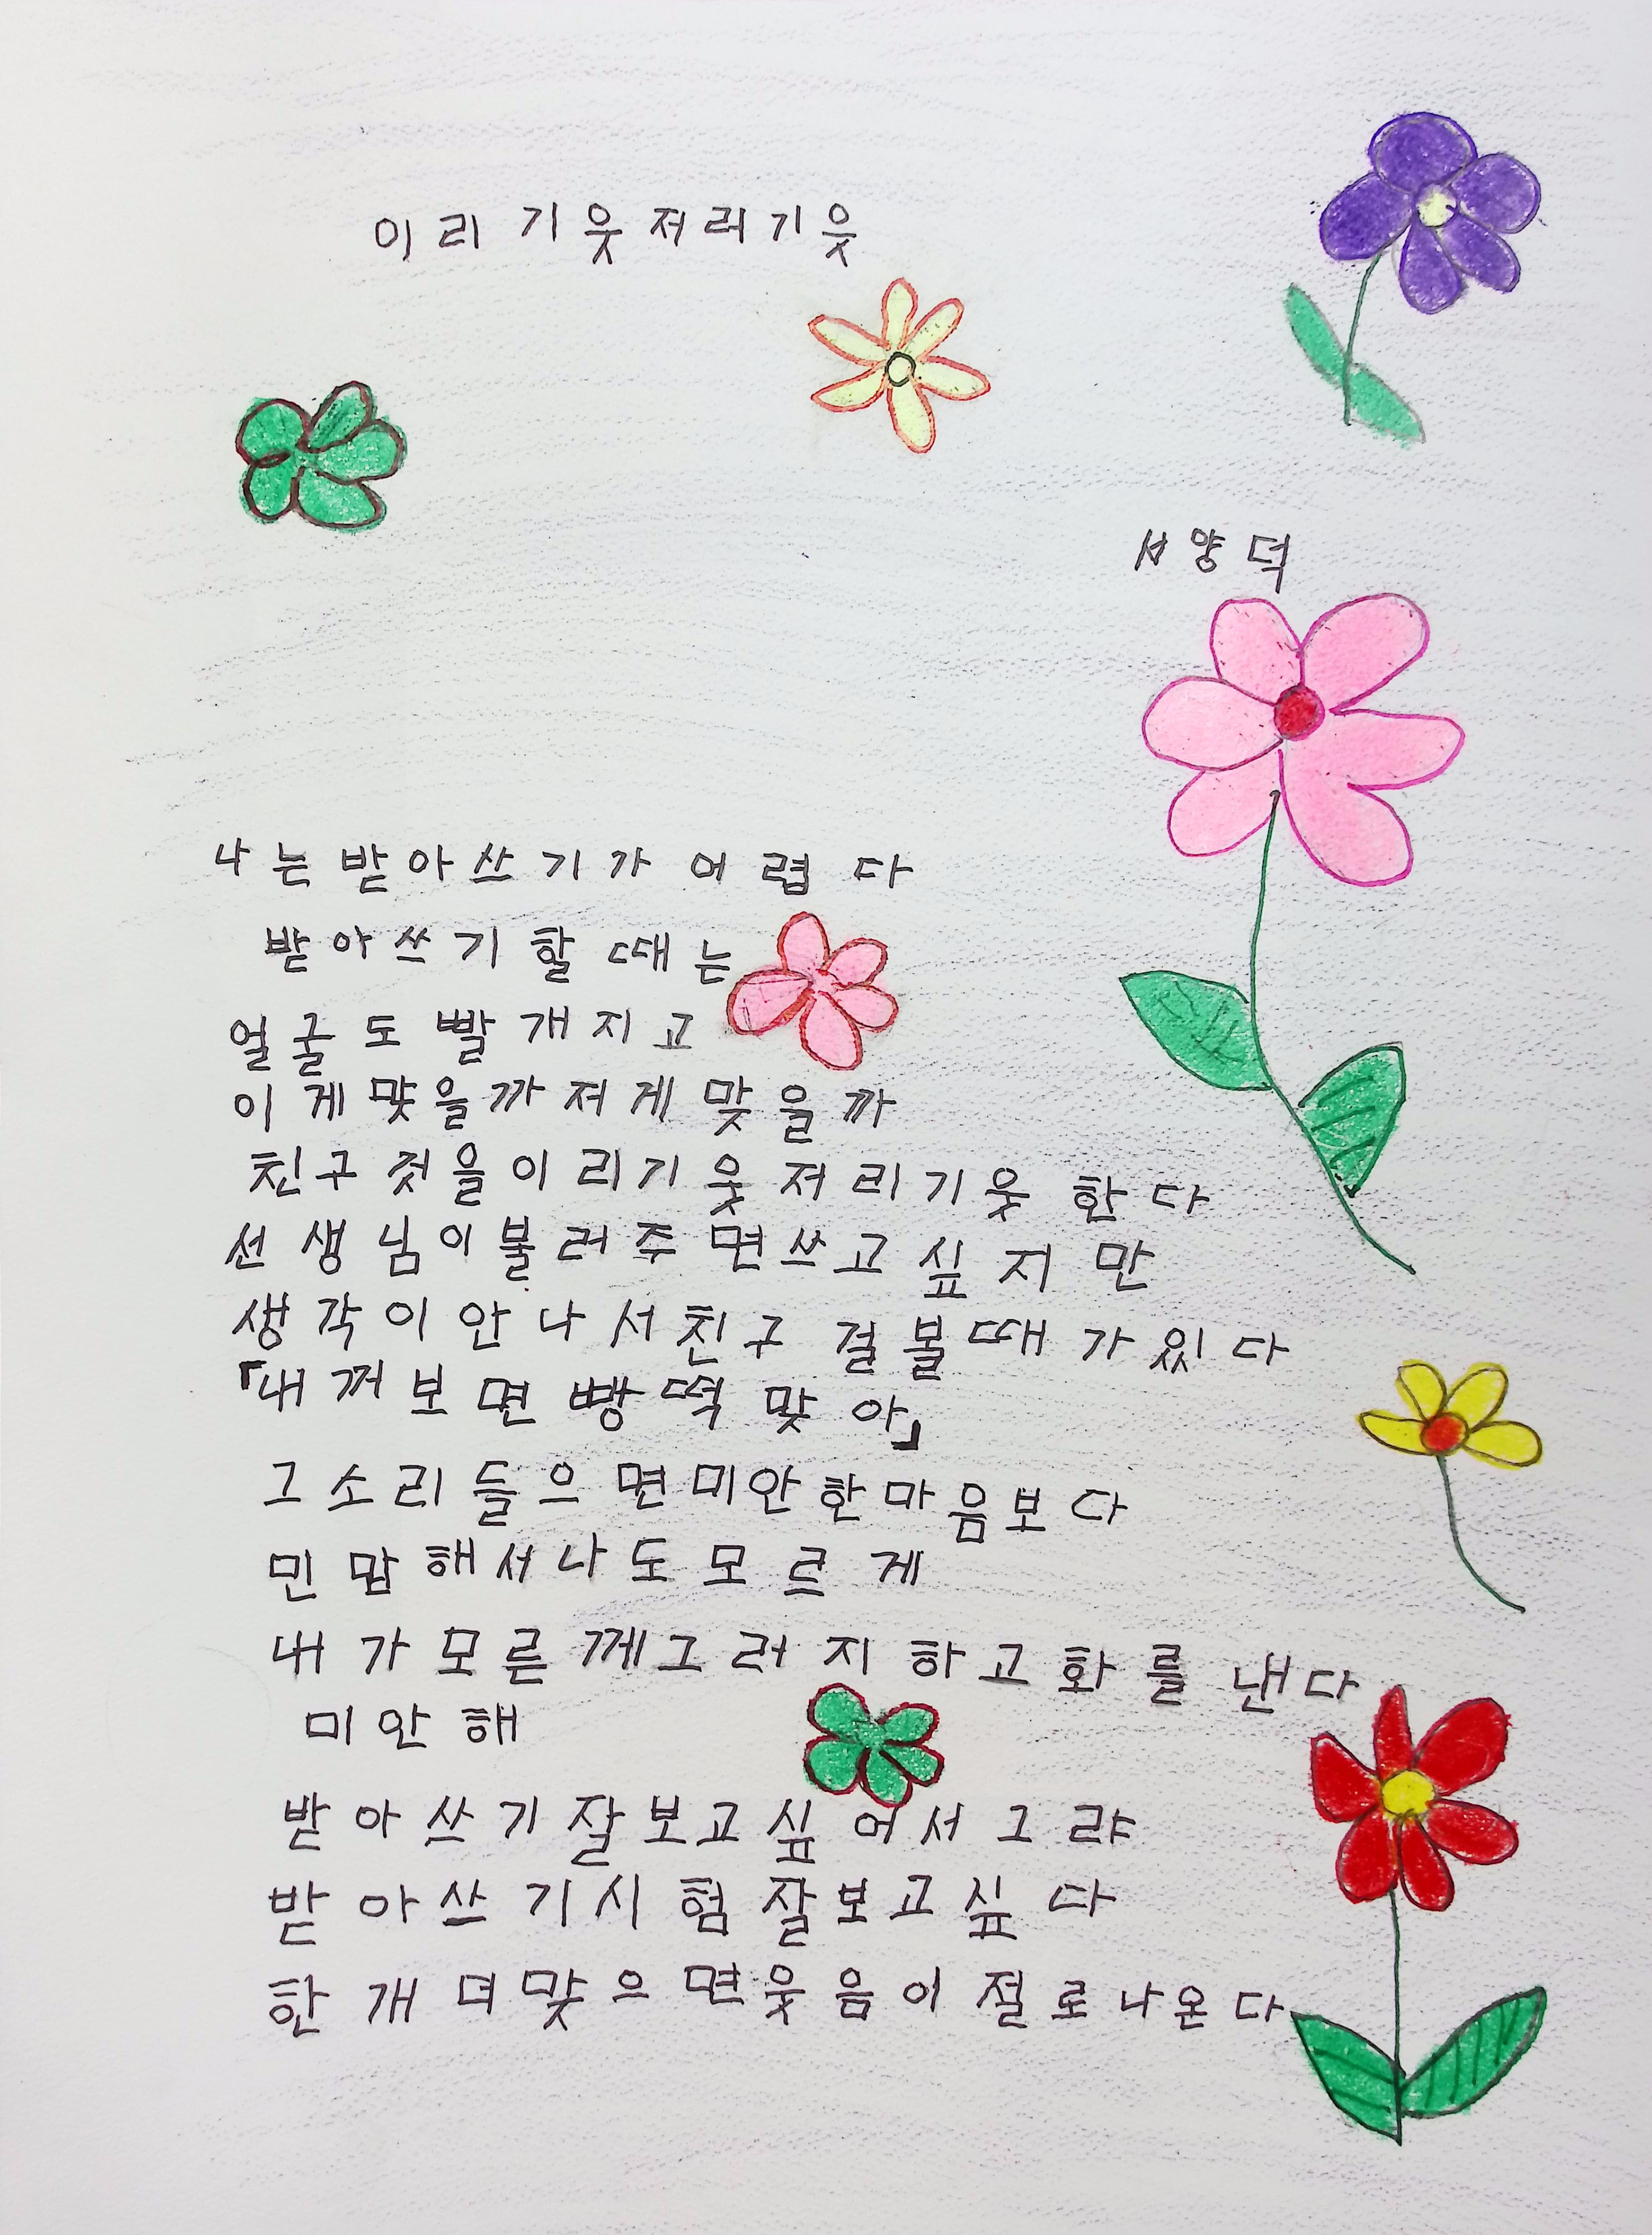 이리 기웃 저리 기웃
서양덕
나는 받아쓰기가 어렵다
받아쓰기 할 때는
얼굴도 빨개지고
이게 맞을까 저게 맞을까
친구 것을 이리 기웃 저리 기웃 한다
선생님이 불러주면 쓰고 싶지만
생각이 안 나서 친구 걸 볼 때가 있다
「내꺼 보면 빵떡 맞아」
그 소리 들으면 미안한 마음보다
민망해서 나도 모르게
내가 모른께 그러지 하고 화를 낸다
미안해
받아쓰기 잘 보고 싶어서 그랴
받아쓰기 시험 잘 보고 싶다
한 개 더 맞으면 웃음이 절로 나온다